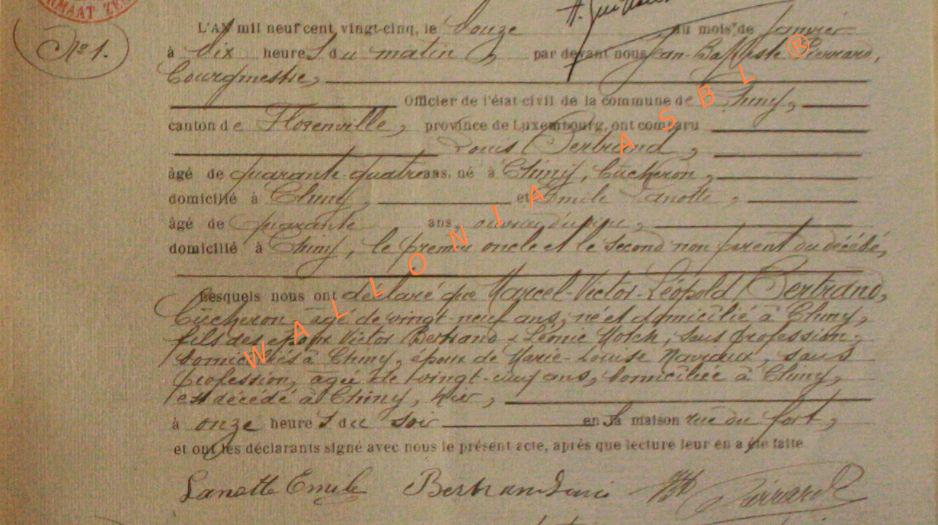 RMAAT ZE
N° 1.
L'AN mil neuf cent, vingt-cinq, le douze au mois de Janvier
à dix heures du matin, par devant nous Jean-Baptiste Pierrard,
Bourgmestre,
Officier de l'état civil de la commune de Chiny,
canton de Florenville, province de Luxembourg, ont comparu
Louis Bertrand,
âgé de quarante-quatre ans, né à Chiny, bûcheron,
domicilié à Chiny, et Emile Lanotte,
âgé de quarante ans,
domicilié à Chiny, le premier oncle et le second non parent du décédé,
Lesquels nous ont déclaré que Marcel-Victor-Léopold Bertrand,
bûcheron, âgé de vingt-neuf ans, né et domicilié à Chiny,
fils des époux Victor Bertrand & Léonie sans profession,
domiciliés à Chiny, époux de Marie-Louise sans
profession, âgée de vingt-neuf ans, domiciliée à Chiny,
est décédé à Chiny, hier,
à onze heures du soir en sa maison rue du fort,
et ont les déclarants signé avec nous le présent acte, après que lecture leur en a été faite
Lanotte Emile Bertrand Louis Pierrard
WALLONIA ASBL ®